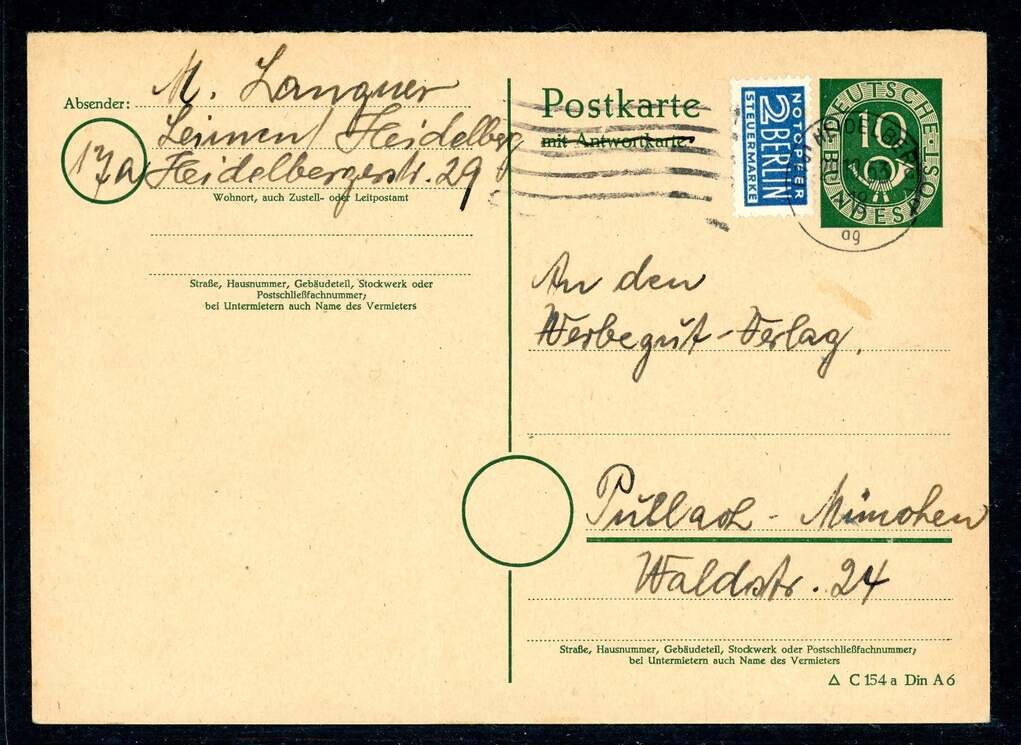 Absender: M. Langner
Leimen / Heidelberg
17a Heidelbergerstr. 29
Wohnort, auch Zustell- oder Leitpostamt
Straße, Hausnummer, Gebäudeteil, Stockwerk oder
Postschließfachnummer;
bei Untermietern auch Name des Vermieters
Postkarte
mit Antwortkarte
NOTOPFER
2 BERLIN
STEUERMARKE
DEUTSCHE POST
10
BUNDESP
HEIDELBERG
ag
An den
Werbegut-Verlag,
Pullach - München
Waldstr. 24
Straße, Hausnummer, Gebäudeteil, Stockwerk oder Postschließfachnummer;
bei Untermietern auch Name des Vermieters
△ C 154 a Din A 6